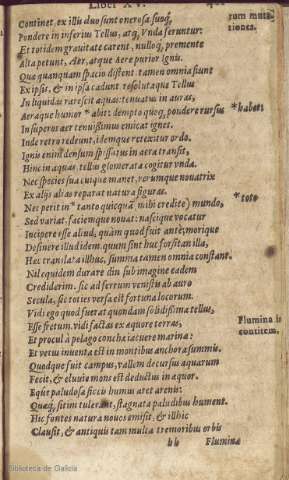 Liber XV.
Continet, ex illis duo sunt onerosa, suoq;
Pondere in inferius Tellus, atq; Vnda feruntur:
Et totidem grauitate carent, nulloq; premente
Alta petunt, Aër, atque Aere purior ignis.
Quæ quanquam spacio distent, tamen omnia fiunt
Ex ipsis, & in ipsa cadunt, resolutaque Tellus
In liquidas rarescit aquas: tenuatus in auras,
Aeraque humor * abit: dempto quoq; pondere rursus
In superos aer tenuissimus emicat ignes.
Inde retro redeunt, idemque retexitur ordo.
Ignis enim densum spissatus in aera transit,
Hinc in aquas, tellus glomerata cogitur vnda.
Nec species sua cuique manet, rerumque nouatrix
Ex alijs alias reparat natura figuras.
Nec perit in * tanto quicquã (mihi credite) mundo,
Sed variat, faciemque nouat: nascique vocatur
Incipere esse aliud, quàm quod fuit antè, morique
Desinere illud idem. quum sint huc forsitan illa,
Hæc translata illuc, summa tamen omnia constant.
Nil equidem durare diu sub imagine eadem
Crediderim. sic ad ferrum venistis ab auro
Secula. sic toties versa est fortuna locorum.
Vidi ego quod fuerat quondam solidissima tellus,
Esse fretum. vidi factas ex æquore terras,
Et procul à pelago conchæ iacuere marinæ:
Et vetus inuenta est in montibus anchora summis.
Quodque fuit campus, vallem decursus aquarum
Fecit, & eluuie mons est deductus in æquor.
Eq́ue paludosa siccis humus aret arenis:
Quæq; sitim tulerant, stagnata paludibus hument.
Hic fontes natura nouos emisit, & illhic
Clausit, & antiquis tam multa tremoribus orbis
hh Flumina
rum muta
tiones.
* habet
* toto
Flumina is
Biblioteca de Galicia